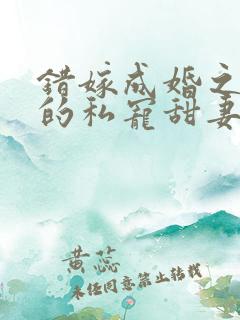 错嫁成婚之
的私宠甜妻
黄蕊
未经同意禁止转载